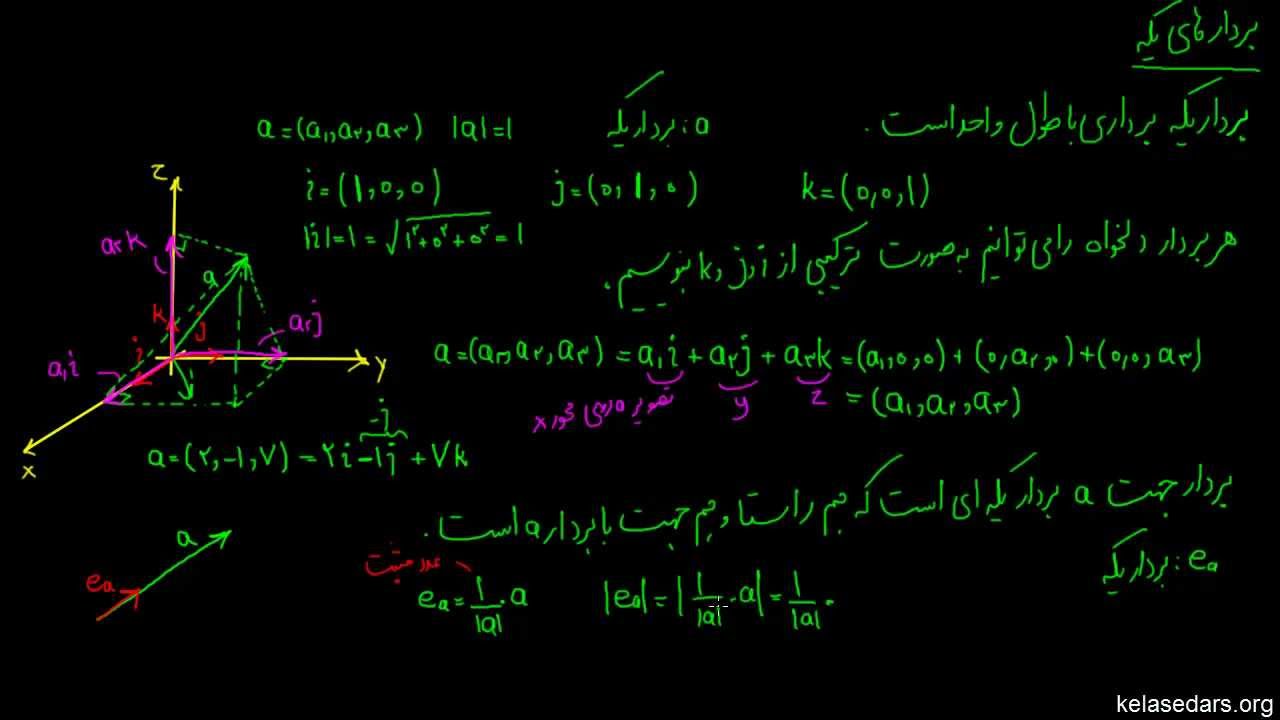 بردارهای یکه
بردار یکه برداری با طول واحد است.
a: بردار یکه |a|=1 a=(a₁,a₂,a₃)
i=(1,0,0) j=(0,1,0) k=(0,0,1)
|i|=1=√1²+0²+0²=1
هر بردار دلخواه را می توانیم به صورت ترکیبی از i و j و k بنویسیم.
a=(a₁,a₂,a₃)=a₁i+a₂j+a₃k=(a₁,0,0)+(0,a₂,0)+(0,0,a₃)
تصویر a روی محور x y z =(a₁,a₂,a₃)
z
a₃k
a
k
j
a₂j
i
a₁i
y
x
-j
a=(۲,-۱,۷)=۲i-۱j+۷k
بردار جهت a بردار یکه ای است که هم راستا و هم جهت با بردار a است.
eₐ: بردار یکه
a
eₐ
عدد مثبت
eₐ=1/|a|.a |eₐ|=|1/|a|.a|=1/|a|.
kelasedars.org